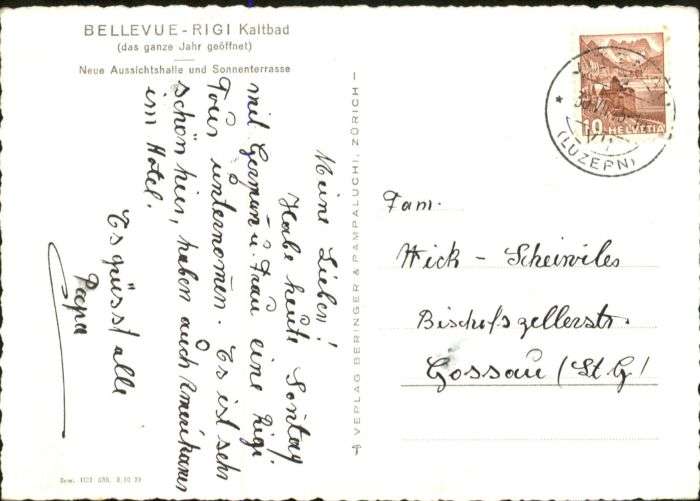 BELLEVUE - RIGI Kaltbad
(das ganze Jahr geöffnet)
Neue Aussichtshalle und Sonnenterrasse
Meine Lieben!
Habe heute Sontag
mit Germann u. Frau eine Rigi
Tour unternomen. Es ist sehr
schön hier, haben auch Amerikaner
im Hotel.
Es grüsst alle
Papa
VERLAG BERINGER & PAMPALUCHI, ZÜRICH
10 HELVETIA
(LUZERN)
Fam.
Hick - Scheiwiles
Bischofszellerstr.
Gossau (St G)